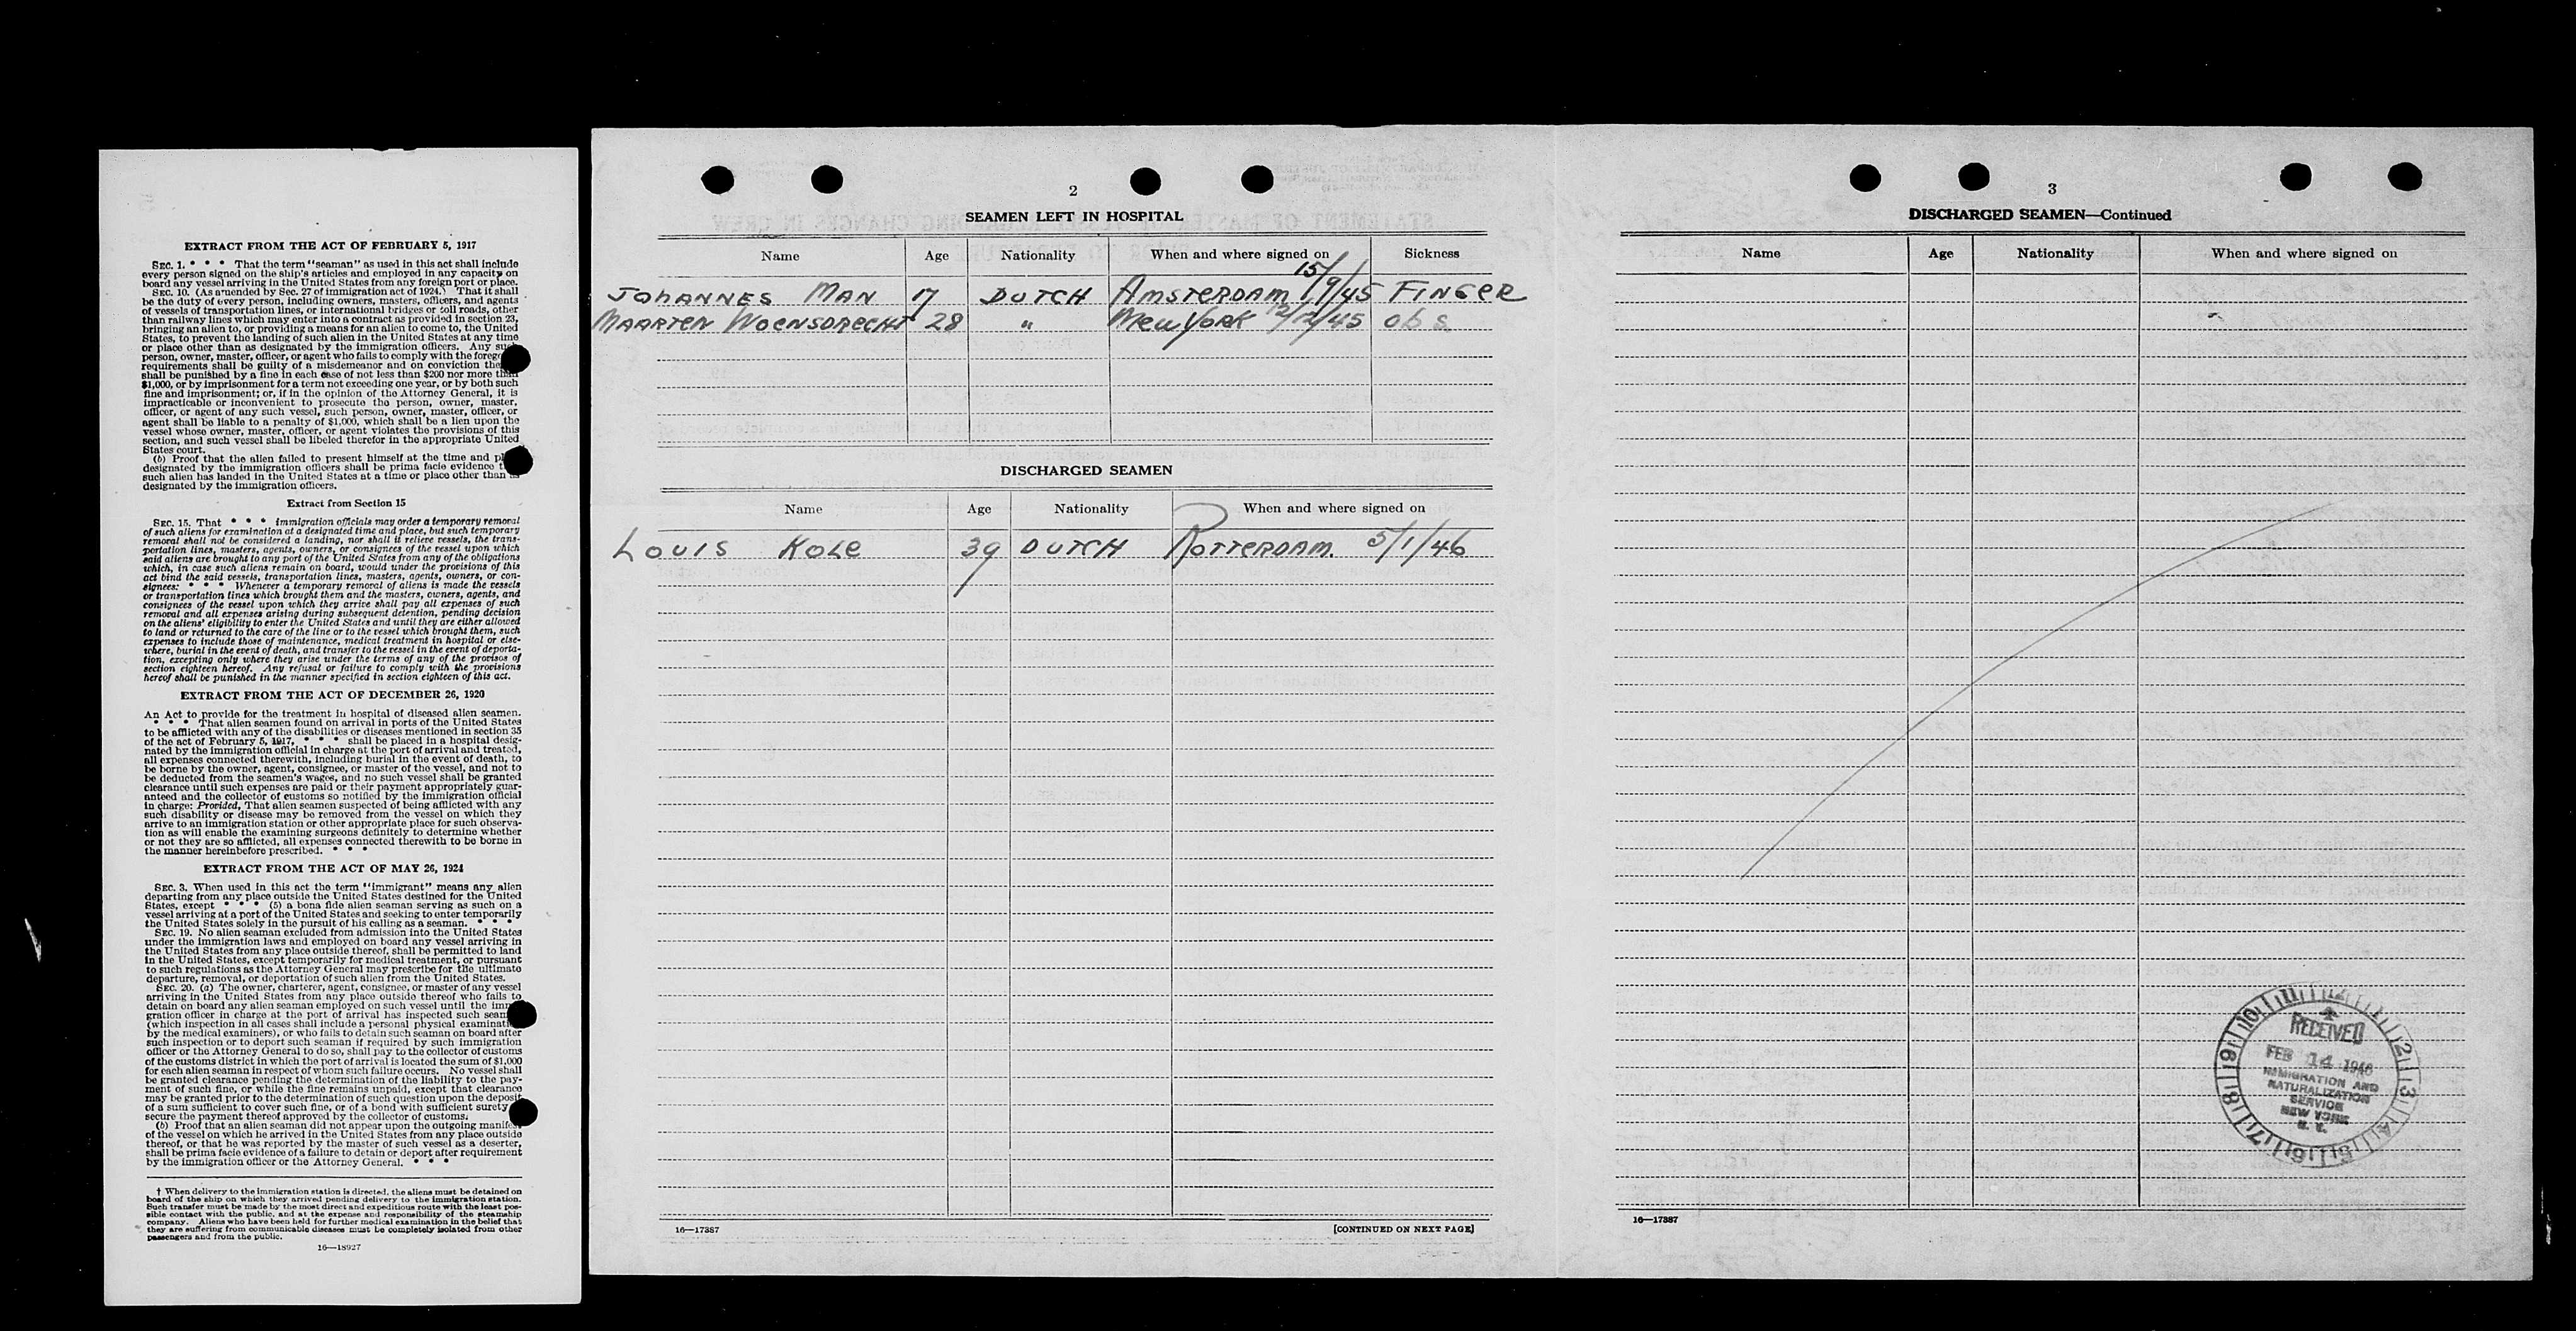 EXTRACT FROM THE ACT OF FEBRUARY 5, 1917
SEC. 1. * * * That the term "seaman" as used in this act shall include
every person signed on the ship's articles and employed in any capacity on
board any vessel arriving in the United States from any foreign port or place.
SEC. 10. (As amended by Sec. 27 of immigration act of 1924.) That it shall
be the duty of every person, including owners, masters, officers, and agents
of vessels of transportation lines, or international bridges or toll roads, other
than railway lines which may enter into a contract as provided in section 23,
bringing an alien to, or providing a means for an alien to come to, the United
States, to prevent the landing of such alien in the United States at any time
or place other than as designated by the immigration officers. Any such
person, owner, master, officer, or agent who fails to comply with the
requirements shall be guilty of a misdemeanor and on conviction
shall be punished by a fine in each case of not less than $200 nor more than
$1,000, or by imprisonment for a term not exceeding one year, or by both such
fine and imprisonment; or, if in the opinion of the Attorney General, it is
impracticable or inconvenient to prosecute the person, owner, master,
officer, or agent of any such vessel, such person, owner, master, officer, or
agent shall be liable to a penalty of $1,000, which shall be a lien upon the
vessel whose owner, master, officer, or agent violates the provisions of this
section, and such vessel shall be libeled therefor in the appropriate United
States court.
(b) Proof that the alien failed to present himself at the time and
designated by the immigration officers shall be prima facie evidence
such alien has landed in the United States at a time or place other than
designated by the immigration officers.
Extract from Section 15
SEC. 15. That * * * immigration officials may order a temporary removal
of such aliens for examination at a designated time and place, but such temporary
removal shall not be considered a landing, nor shall it relieve vessels, the trans-
portation lines, masters, agents, owners, or consignees of the vessel upon which
said aliens are brought to any port of the United States from any of the obligations
which, in case such aliens remain on board, would under the provisions of this
act bind the said vessels, transportation lines, masters, agents, owners, or con-
signees: * * * Whenever a temporary removal of aliens is made the vessels
or transportation lines which brought them and the masters, owners, agents, and
consignees of the vessel upon which they arrive shall pay all expenses of such
removal and all expenses arising during subsequent detention, pending decision
on the aliens' eligibility to enter the United States and until they are either allowed
to land or returned to the care of the line or to the vessel which brought them, such
expenses to include those of maintenance, medical treatment in hospital or else-
where, burial in the event of death, and transfer to the vessel in the event of deporta-
tion, excepting only where they arise under the terms of any of the provisos of
section eighteen hereof. Any refusal or failure to comply with the provisions
hereof shall be punished in the manner specified in section eighteen of this act.
EXTRACT FROM THE ACT OF DECEMBER 26, 1920
An Act to provide for the treatment in hospital of diseased alien seamen.
* * * That alien seamen found on arrival in ports of the United States
to be afflicted with any of the disabilities or diseases mentioned in section 35
of the act of February 5, 1917, * * * shall be placed in a hospital desig-
nated by the immigration official in charge at the port of arrival and treated,
all expenses connected therewith, including burial in the event of death, to
be borne by the owner, agent, consignee, or master of the vessel, and not to
be deducted from the seamen's wages, and no such vessel shall be granted
clearance until such expenses are paid or their payment appropriately guar-
anteed and the collector of customs so notified by the immigration official
in charge: Provided, That alien seamen suspected of being afflicted with any
such disability or disease may be removed from the vessel on which they
arrive to an immigration station or other appropriate place for such observa-
tion as will enable the examining surgeons definitely to determine whether
or not they are so afflicted, all expenses connected therewith to be borne in
the manner hereinbefore prescribed. * * *
EXTRACT FROM THE ACT OF MAY 26, 1924
SEC. 3. When used in this act the term "immigrant" means any alien
departing from any place outside the United States destined for the United
States, except * * * (5) a bona fide alien seaman serving as such on a
vessel arriving at a port of the United States and seeking to enter temporarily
the United States solely in the pursuit of his calling as a seaman. * * *
SEC. 19. No alien seaman excluded from admission into the United States
under the immigration laws and employed on board any vessel arriving in
the United States from any place outside thereof, shall be permitted to land
in the United States, except temporarily for medical treatment, or pursuant
to such regulations as the Attorney General may prescribe for the ultimate
departure, removal, or deportation of such alien from the United States.
SEC. 20. (a) The owner, charterer, agent, consignee, or master of any vessel
arriving in the United States from any place outside thereof who fails to
detain on board any alien seaman employed on such vessel until the immi-
gration officer in charge at the port of arrival has inspected such seaman
(which inspection in all cases shall include a personal physical examination
by the medical examiners), or who fails to detain such seaman on board after
such inspection or to deport such seaman if required by such immigration
officer or the Attorney General to do so, shall pay to the collector of customs
of the customs district in which the port of arrival is located the sum of $1,000
for each alien seaman in respect of whom such failure occurs. No vessel shall
be granted clearance pending the determination of the liability to the pay-
ment of such fine, or while the fine remains unpaid, except that clearance
may be granted prior to the determination of such question upon the deposit
of a sum sufficient to cover such fine, or of a bond with sufficient surety
secure the payment thereof approved by the collector of customs.
(b) Proof that an alien seaman did not appear upon the outgoing manifest
of the vessel on which he arrived in the United States from any place outside
thereof, or that he was reported by the master of such vessel as a deserter,
shall be prima facie evidence of a failure to detain or deport after requirement
by the immigration officer or the Attorney General. * * *
† When delivery to the immigration station is directed, the aliens must be detained on
board of the ship on which they arrived pending delivery to the immigration station.
Such transfer must be made by the most direct and expeditious route with the least pos-
sible contact with the public, and at the expense and responsibility of the steamship
company. Aliens who have been held for further medical examination in the belief that
they are suffering from communicable diseases must be completely isolated from other
passengers and from the public.
16—18927
2
SEAMEN LEFT IN HOSPITAL
Name Age Nationality When and where signed on Sickness
JOHANNES MAN 17 DUTCH AMSTERDAM 15/9/45 FINGER
MAARTEN WOENSDRECHT 28 " New York 12/12/45 obs.
DISCHARGED SEAMEN
Name Age Nationality When and where signed on
LOUIS KOLE 39 DUTCH ROTTERDAM. 5/1/46
16—17387 [CONTINUED ON NEXT PAGE]
3
DISCHARGED SEAMEN—Continued
Name Age Nationality When and where signed on
RECEIVED
FEB 14 1946
IMMIGRATION AND
NATURALIZATION
SERVICE
NEW YORK
N. Y.
16—17387